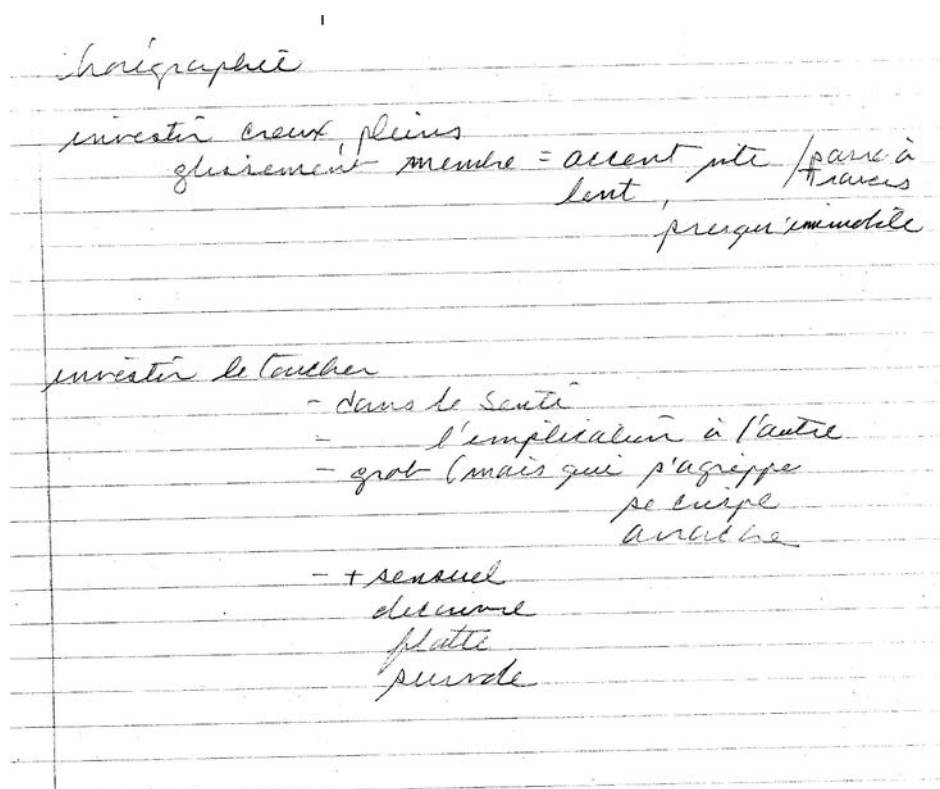 chorégraphie
investir creux, pleins
glissement membre = accent vite / passe à travers
lent,
presqu'immobile
investir le toucher
- dans le senti
- l'implication à l'autre
- (mais qui s'agrippe
se crispe
arrache
- + sensuel
découvre
flatte